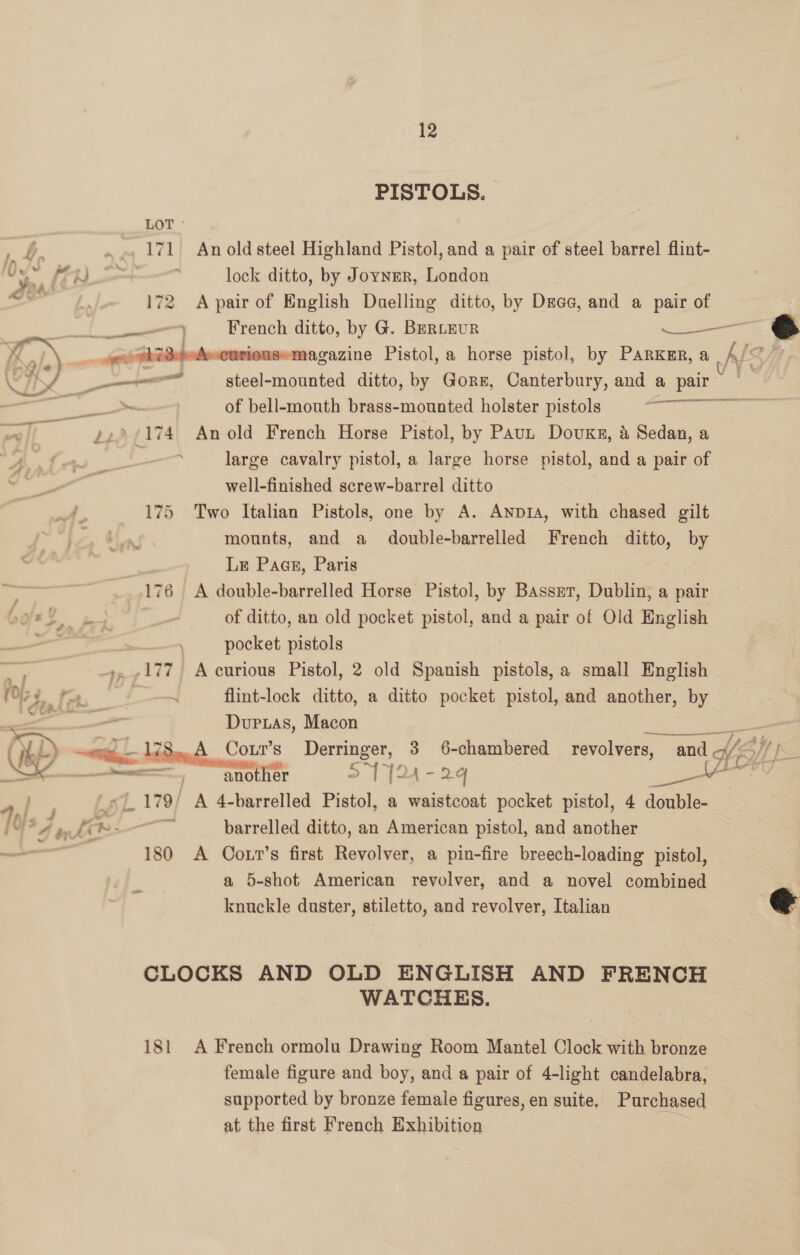 12
PISTOLS.
LOT
171 An old steel Highland Pistol, and a pair of steel barrel flint-
lock ditto, by JOYNER, London
172 A pair of English Duelling ditto, by DEGG, and a pair of
French ditto, by G. BERLEUR
173 A curious magazine Pistol, a horse pistol, by PARKER, a
steel-mounted ditto, by GORE, Canterbury, and a pair
of bell-mouth brass-mounted holster pistols
174 An old French Horse Pistol, by PAUL DOUKE, à Sedan, a
large cavalry pistol, a large horse pistol, and a pair of
well-finished screw-barrel ditto
175 Two Italian Pistols, one by A. ANDIA, with chased gilt
mounts, and a double-barrelled French ditto, by
LE PAGE, Paris
176 A double-barrelled Horse Pistol, by BASSET, Dublin, a pair
of ditto, an old pocket pistol, and a pair of Old English
pocket pistols
177 A curious Pistol, 2 old Spanish pistols, a small English
flint-lock ditto, a ditto pocket pistol, and another, by
DUPLAS, Macon
178 A COLT'S Derringer, 3 6-chambered revolvers, and
another
179 A 4-barrelled Pistol, a waistcoat pocket pistol, 4 double-
barrelled ditto, an American pistol, and another
180 A COLT'S first Revolver, a pin-fire breech-loading pistol,
a 5-shot American revolver, and a novel combined
knuckle duster, stiletto, and revolver, Italian
CLOCKS AND OLD ENGLISH AND FRENCH
WATCHES.
181 A French ormolu Drawing Room Mantel Clock with bronze
female figure and boy, and a pair of 4-light candelabra,
supported by bronze female figures, en suite. Purchased
at the first French Exhibition